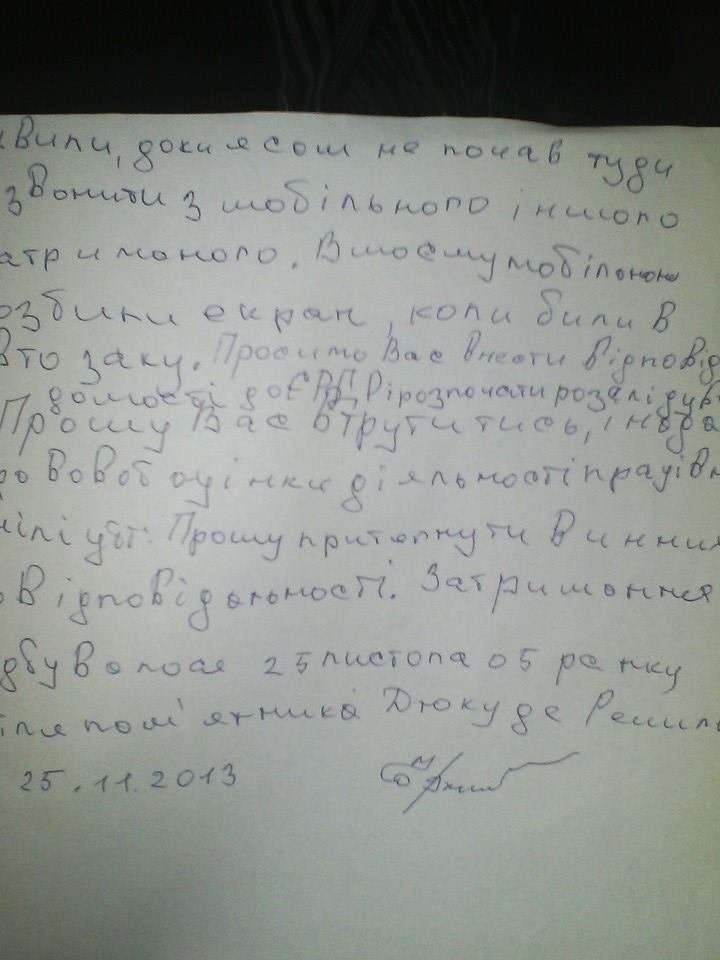 вили, доки я сам не почав туди
звонити з мобільного іншого
атриманого. В моєму мобільному
озбили екран, коли били в
вто заку. Просимо Вас внести відповід
домості до ЄРДР і розпочати розслідув
Прошу Вас втрутитись, і нада
равової оцінки діяльності працівн
міліції. Прошу притягнути винних
о відповідальності. Затримання
дбувалося 25 листопа о 5 ранку
іля пам'ятника Дюку де Решиль
25.11.2013